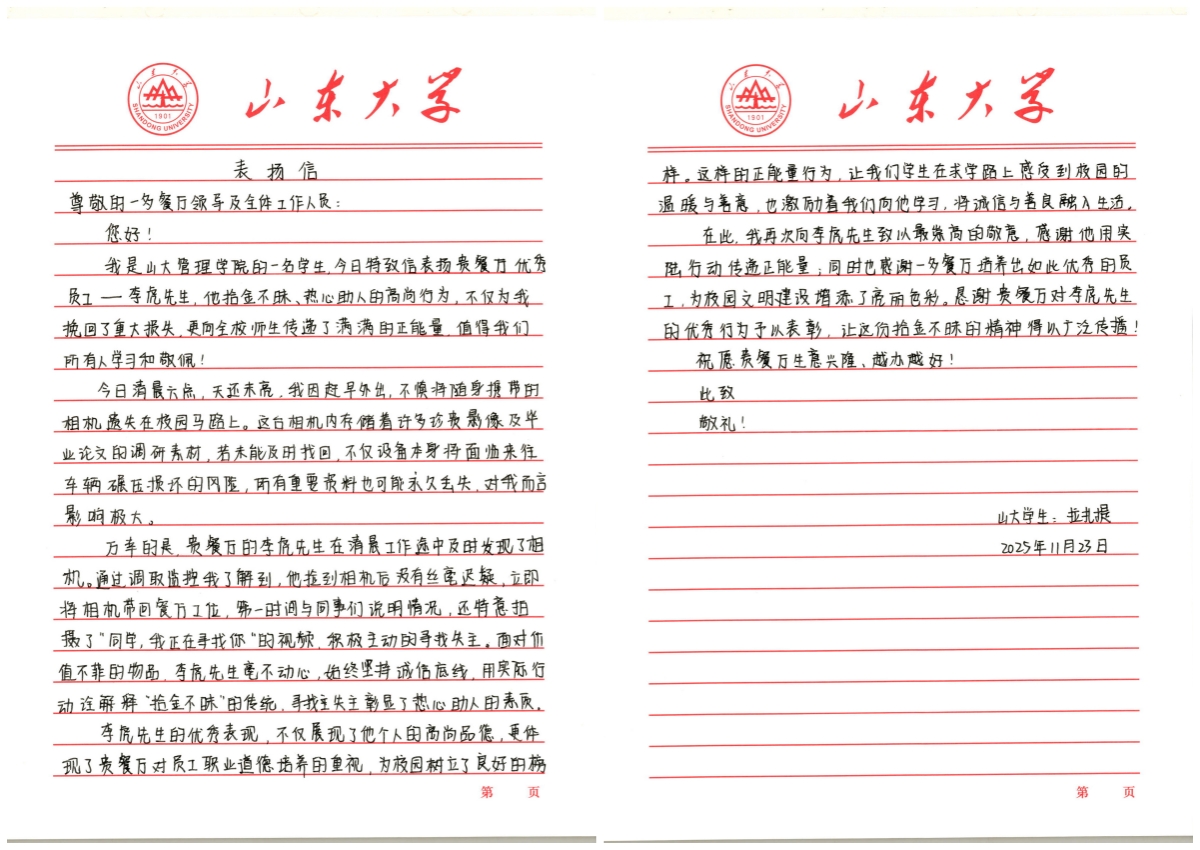 山东大学
SHANDONG UNIVERSITY
1901
山东大学
表扬信
尊敬的一多餐厅领导及全体工作人员:
您好!
我是山大管理学院的一名学生,今日特致信表扬贵餐厅优秀
员工——李虎先生,他拾金不昧、热心助人的高尚行为,不仅为我
挽回了重大损失,更向全校师生传递了满满的正能量,值得我们
所有人学习和敬佩!
今日清晨六点,天还未亮,我因赶早外出,不慎将随身携带的
相机遗失在校园马路上。这台相机内存储着许多珍贵影像及毕
业论文的调研素材,若未能及时找回,不仅设备本身将面临来往
车辆碾压损坏的风险,所有重要资料也可能永久丢失,对我而言
影响极大。
万幸的是,贵餐厅的李虎先生在清晨工作途中及时发现了相
机。通过调取监控我了解到,他捡到相机后没有丝毫迟疑,立即
将相机带回餐厅工位,第一时间与同事们说明情况,还特意拍
摄了“同学,我正在寻找你”的视频,积极主动的寻找失主。面对价
值不菲的物品,李虎先生毫不动心,始终坚持诚信底线,用实际行
动诠解释“拾金不昧”的传统,寻找主失主彰显了热心助人的素质。
李虎先生的优秀表现,不仅展现了他个人的高尚品德,更体
现了贵餐厅对员工职业道德培养的重视,为校园树立了良好的榜
第 页
山东大学
SHANDONG UNIVERSITY
1901
山东大学
样。这样的正能量行为,让我们学生在求学路上感受到校园的
温暖与善意,也激励着我们向他学习,将诚信与善良融入生活。
在此,我再次向李虎先生致以最崇高的敬意,感谢他用实
际行动传递正能量;同时也感谢一多餐厅培养出如此优秀的员
工,为校园文明建设增添了亮丽色彩。恳谢贵餐厅对李虎先生
的优秀行为予以表彰,让这份拾金不昧的精神得以广泛传播!
祝愿贵餐厅生意兴隆、越办越好!
此致
敬礼!
山大学生:拉扎提
2025年11月23日
第 页